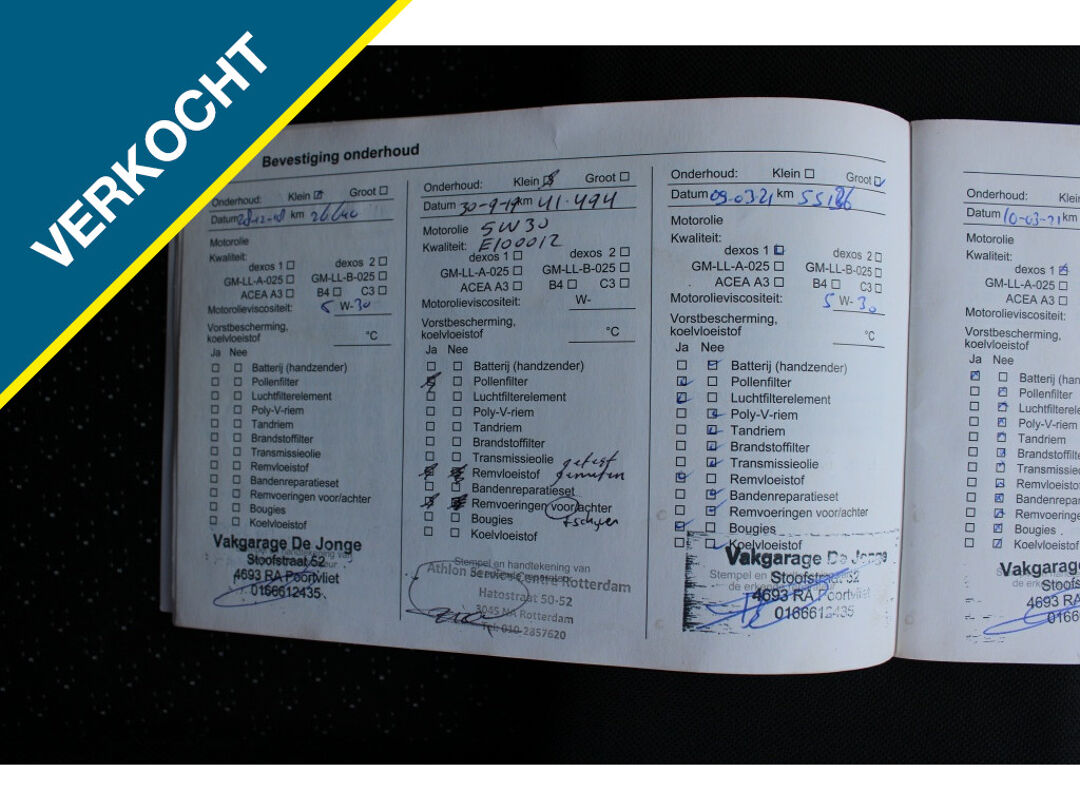 VERKOCHT
Bevestiging onderhoud
Onderhoud: Klein Groot
Datum km
Motorolie
Kwaliteit:
dexos 1 dexos 2
GM-LL-A-025 GM-LL-B-025
ACEA A3 B4 C3
Motorolieviscositeit: 5 W-30
Vorstbescherming,
koelvloeistof °C
Ja Nee
Batterij (handzender)
Pollenfilter
Luchtfilterelement
Poly-V-riem
Tandriem
Brandstoffilter
Transmissieolie
Remvloeistof
Bandenreparatieset
Remvoeringen voor/achter
Bougies
Koelvloeistof
Vakgarage De Jonge
Stoofstraat 52
4693 RA Poortvliet
0166612435
Onderhoud: Klein Groot
Datum 30-9-19 km 41.494
Motorolie 5W30
Kwaliteit: E100012
dexos 1 dexos 2
GM-LL-A-025 GM-LL-B-025
ACEA A3 B4 C3
Motorolieviscositeit: W-
Vorstbescherming,
koelvloeistof °C
Ja Nee
Batterij (handzender)
Pollenfilter
Luchtfilterelement
Poly-V-riem
Tandriem
Brandstoffilter
Transmissieolie
Remvloeistof
Bandenreparatieset
Remvoeringen voor/achter
Bougies
Koelvloeistof
Stempel en handtekening van
Athlon Service Centre Rotterdam
Hatostraat 50-52
3045 NA Rotterdam
Tel: 010-2857620
Onderhoud: Klein Groot
Datum 09-0321 km 55186
Motorolie
Kwaliteit:
dexos 1 dexos 2
GM-LL-A-025 GM-LL-B-025
ACEA A3 B4 C3
Motorolieviscositeit: 5 W-30
Vorstbescherming,
koelvloeistof °C
Ja Nee
Batterij (handzender)
Pollenfilter
Luchtfilterelement
Poly-V-riem
Tandriem
Brandstoffilter
Transmissieolie
Remvloeistof
Bandenreparatieset
Remvoeringen voor/achter
Bougies
Koelvloeistof
Vakgarage De Jonge
Stoofstraat 52
4693 RA Poortvliet
0166612435
Onderhoud: Klei
Datum 10-03-21 km
Motorolie
Kwaliteit:
dexos 1
GM-LL-A-025
ACEA A3
Motorolieviscositeit:
Vorstbescherming,
koelvloeistof
Ja Nee
Batterij (han
Pollenfilter
Luchtfilterele
Poly-V-riem
Tandriem
Brandstoffilt
Transmissie
Remvloeisto
Bandenrepa
Remvoering
Bougies
Koelvloeistof
Vakgarage
Stoofs
4693 RA
0166